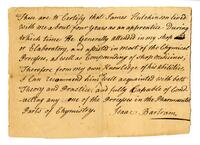 These are to Certify that James Hutchinson lived
with me about four years as an apprentice. During
which time He Generally attended in my shop
or Elaboratory, and assisted in most of the Chymical
Processes, as well as Compounding of shop medicines,
Therefore from my own Knowledge of his abilities
I Can recommend him well acquainted with both
Theory and Practice; and fully Capable of Cond
ucting any one of the Processes in the Pharmaceutic
Parts of Chymistry.
Isaac Bartram